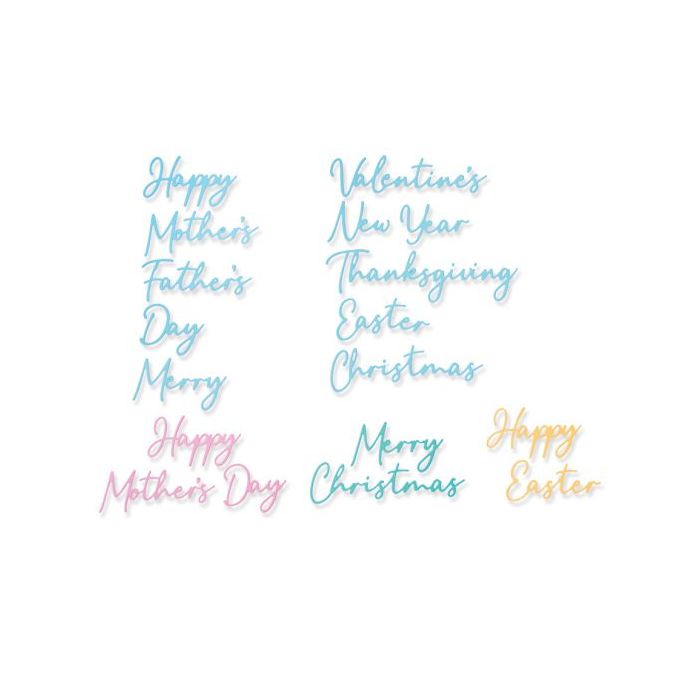 Happy
Mother's
Father's
Day
Merry
Valentine's
New Year
Thanksgiving
Easter
Christmas
Happy
Mother's Day
Merry
Christmas
Happy
Easter